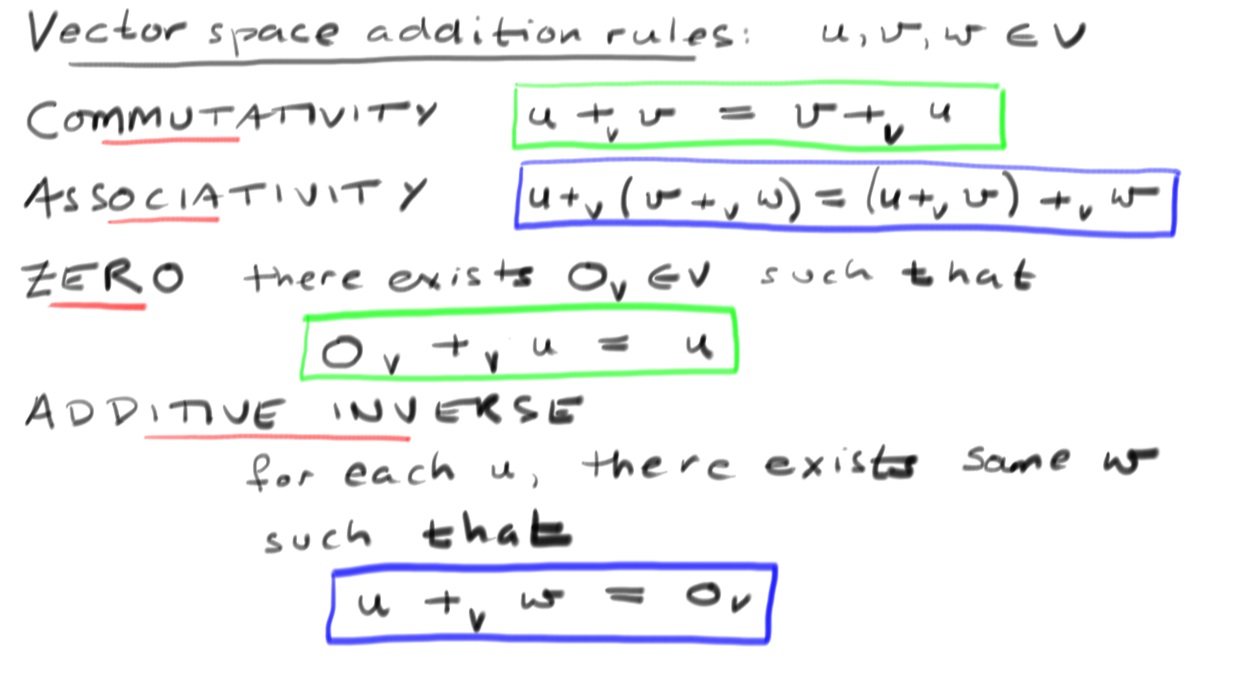 Vector space addition rules: u, v, w ∈ V
COMMUTATIVITY u +ᵥ v = v +ᵥ u
ASSOCIATIVITY u +ᵥ (v +ᵥ w) = (u +ᵥ v) +ᵥ w
ZERO there exists 0ᵥ ∈ V such that
0ᵥ +ᵥ u = u
ADDITIVE INVERSE
for each u, there exists some w
such that
u +ᵥ w = 0ᵥ